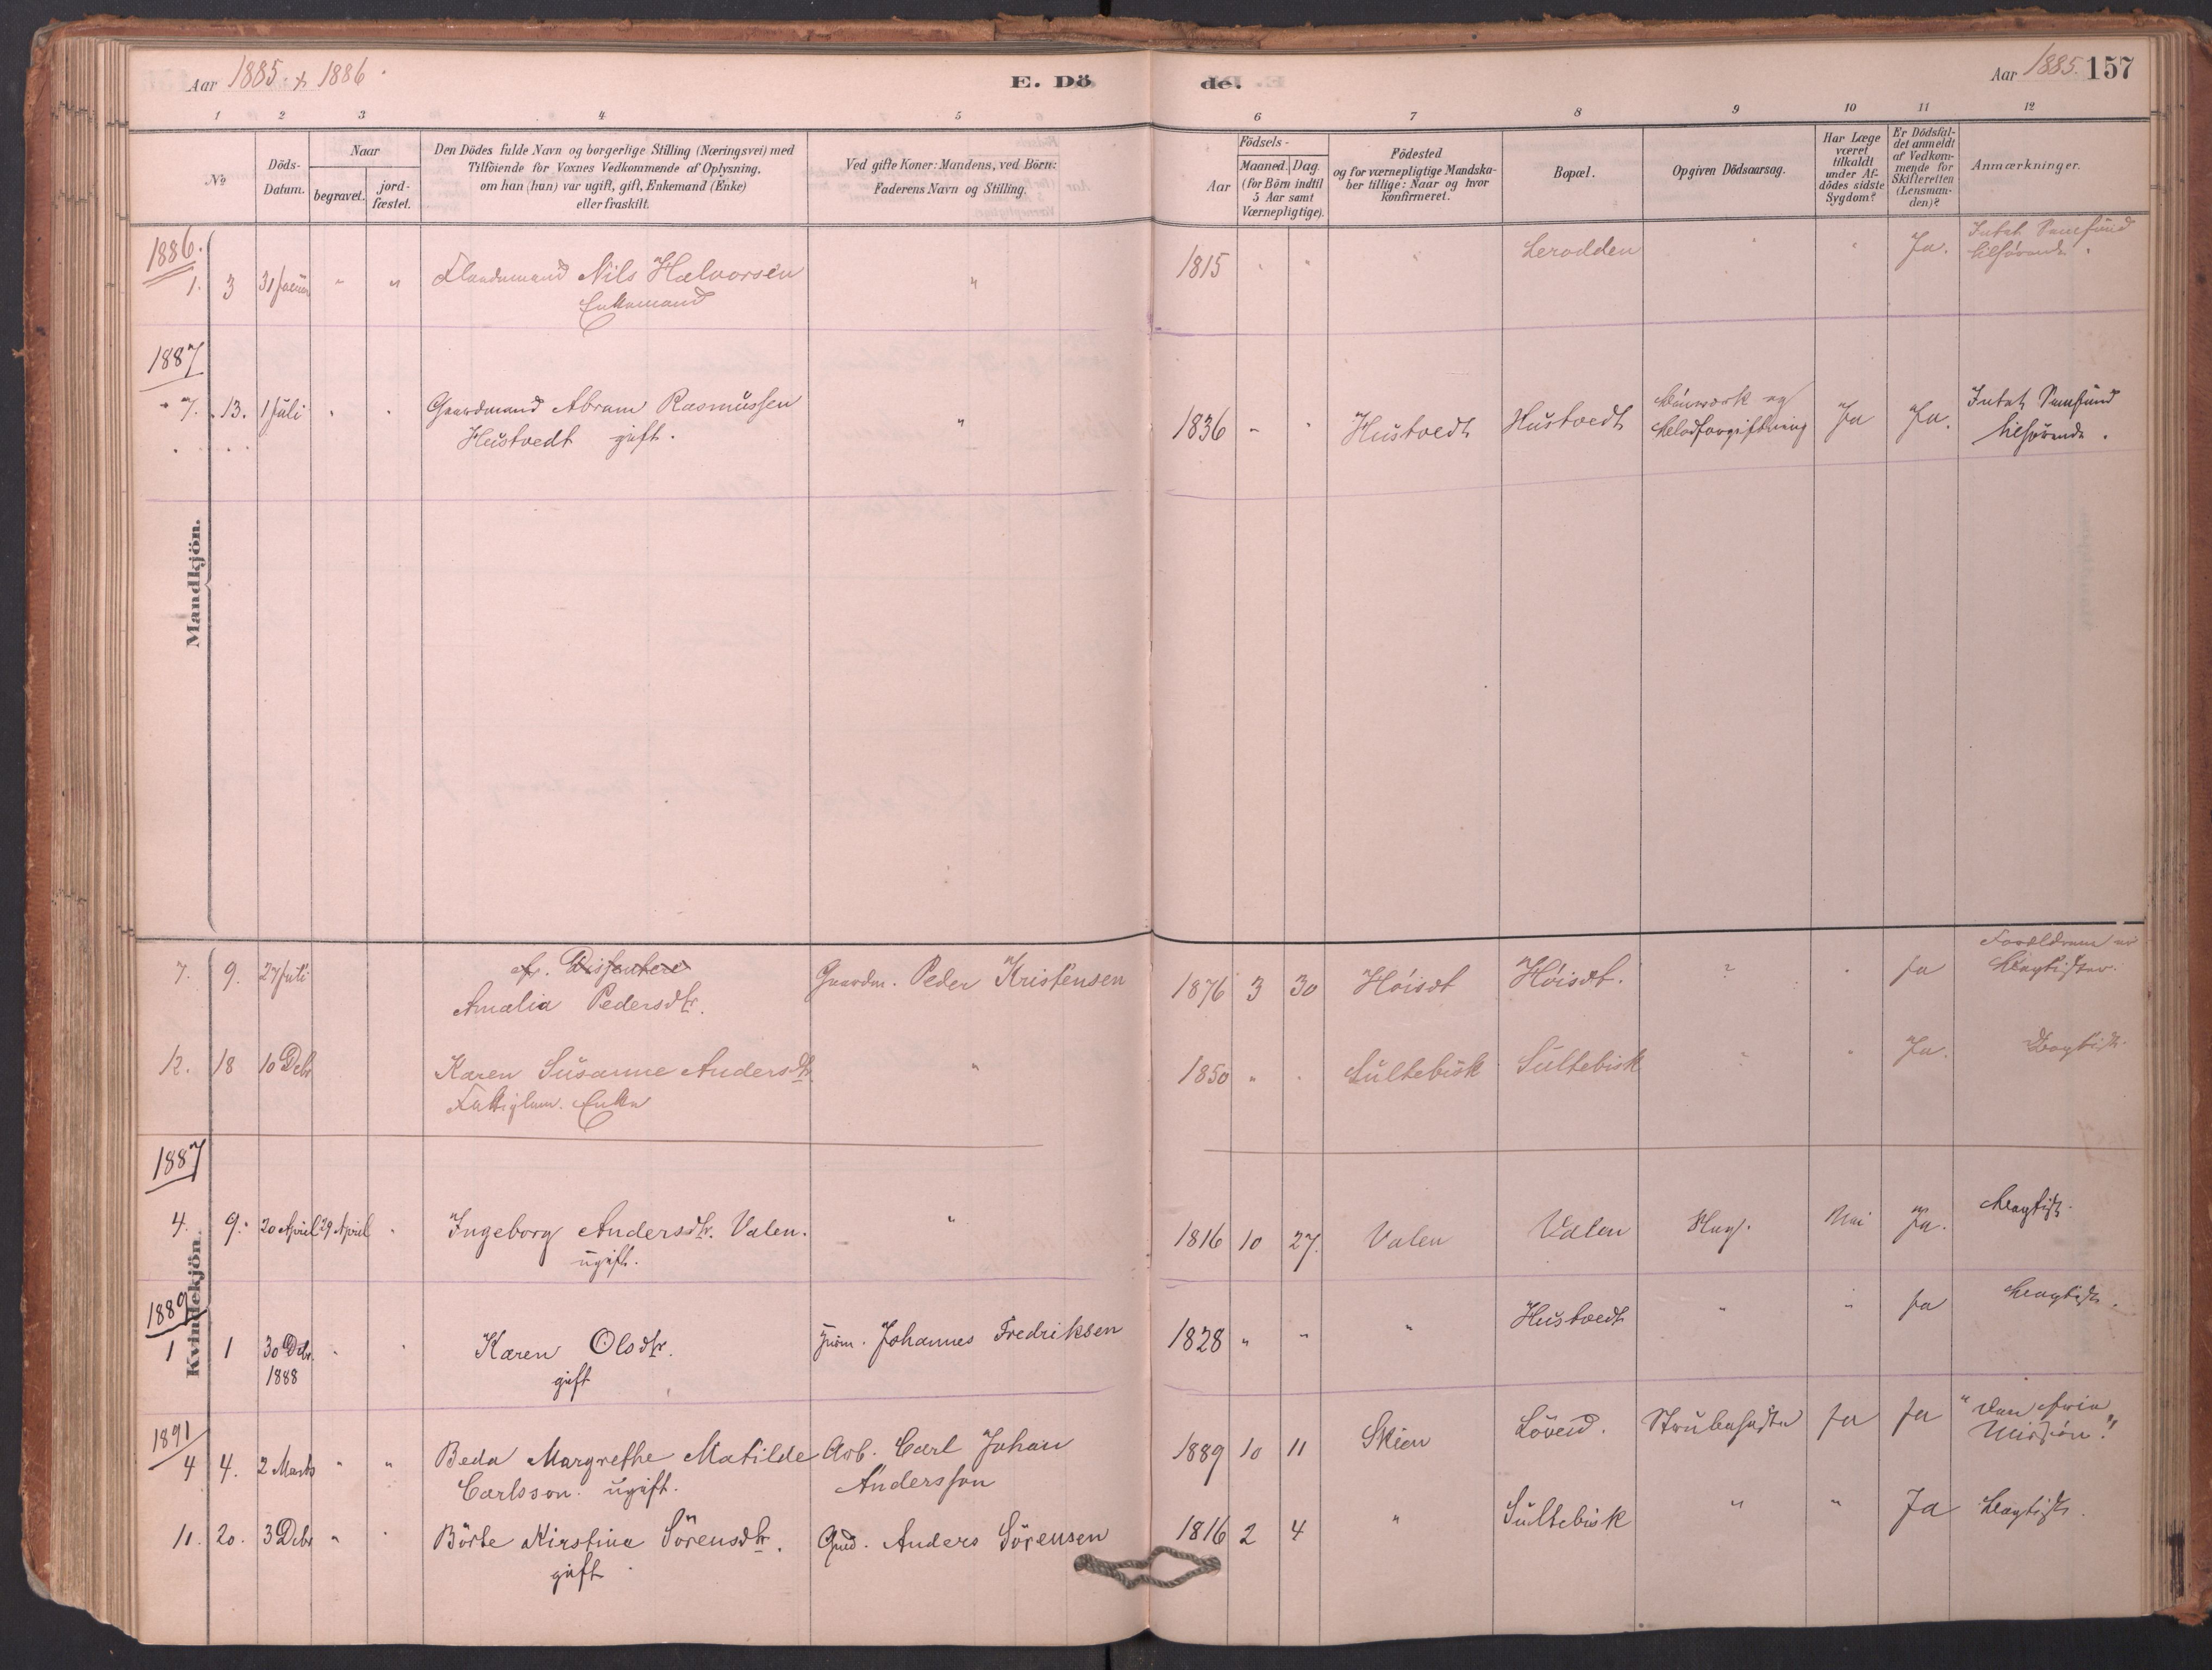 Aar 1885 & 1886.
E. Dö
de.
Aar 1885. 157
1 2 3 4 5 6 7 8 9 10 11 12
No
Döds-
Datum.
Naar
begravet.
jord-
fæstet.
Den Dödes fulde Navn og borgerlige Stilling (Næringsvei) med
Tilföiende for Voxnes Vedkommende af Oplysning,
om han (hun) var ugift, gift, Enkemand (Enke)
eller fraskilt.
Ved gifte Koner: Mandens, ved Börn:
Faderens Navn og Stilling.
Födsels-
Aar
Maaned. Dag.
(for Börn indtil
5 Aar samt
Værnepligtige).
Födested
og for værnepligtige Mandska-
ber tillige: Naar og hvor
konfirmeret.
Bopæl.
Opgiven Dödsaarsag.
Har Læge
været
tilkaldt
under Af-
dödes sidste
Sygdom?
Er Dödsfal-
det anmeldt
af Vedkom-
mende for
Skifteretten
(Lensman-
den)?
Anmærkninger.
Mandkjön.
1886.
1. 3 31 Januar " " Nils Halvorsen " 1815 " " " Lerodden " " Ja. Intet Samfund
Enkemand tilhørende.
1887
7. 13. 1 Juli " " Gaardmand Abram Rasmussen " 1836 " " Hustvedt Hustvedt og Ja Ja. Intet Samfund
Hustvedt gift. Blodforgiftning tilhørende.
Kvindekjön.
7. 9. 27 Juli af. Dissentere Gaardm. Peder Kristensen 1876 3 30 Höisdt Höisdt. ? " Ja Forældrene er
Amalia Pedersdtr. Baptister.
12. 18 10 Debr Karen Susanne Andersdtr " 1850 " " Sultebisk Sultebisk " " Ja. Baptist.
Fattiglem. Enke
1887
4. 9. 20 April 29 April " Ingeborg Andersdtr. Valen. " 1816 10 27. Valen Valen Nei Ja. Baptist.
ugift.
1889
1 1 30 Debr. " " Karen Olsdtr. Johannes Fredriksen 1828 " " " Hustvedt " " Ja Baptist.
1888 gift
1891
4 4. 2 Marts " " Beda Margrethe Matilde Arb. Carl Johan 1889 10 11 Skien Löveid. Strubehoste Ja Ja "Den frie
Carlsson. ugift. Andersson Mission."
11. 20. 3 Debr " " Börte Kirstine Sörensdtr. Gmd. Anders Sörensen 1816 2 4 " Sultebisk " " Ja Baptist.
gift.